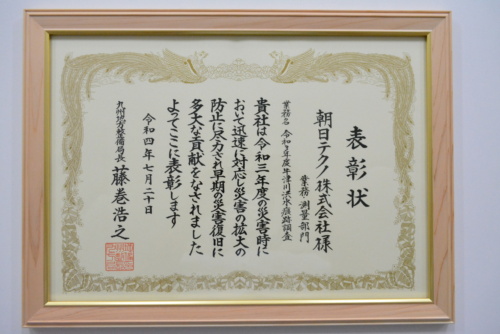 表彰状
朝日テクノ株式会社様
業務 測量部門
業務名 令和3年度牛津川洪水痕跡調査
貴社は令和三年度の災害時に
おいて迅速に対応し災害の拡大の
防止に尽力され早期の災害復旧に
多大な貢献をなされました
よってここに表彰します
令和四年七月二十日
九州地方整備局長 藤巻浩之